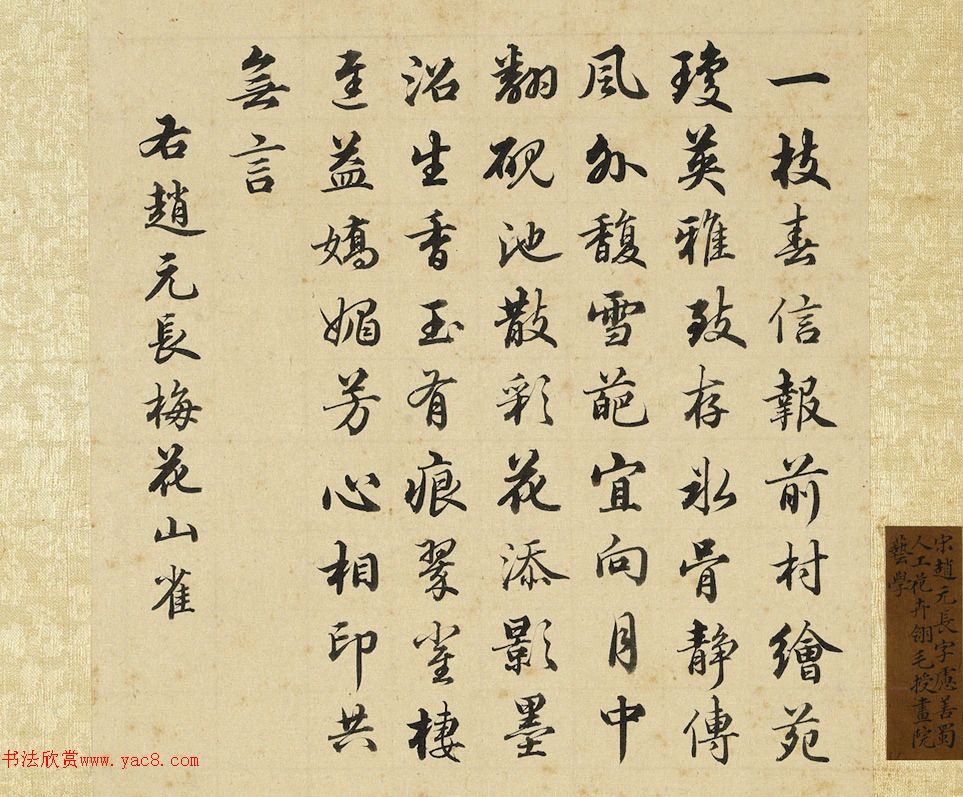 一枝春信報前村繪苑
瓊英雅致存冰骨靜傳
風外馥雪葩宜向月中
翻硯池散彩花添影墨
沼生香玉有痕翠雀棲
遲益嬌媚芳心相印共
無言
右趙元長梅花山雀
宋趙元長字慮善蜀
人工花卉翎毛授畫院
藝學
书法欣赏www.yac8.com